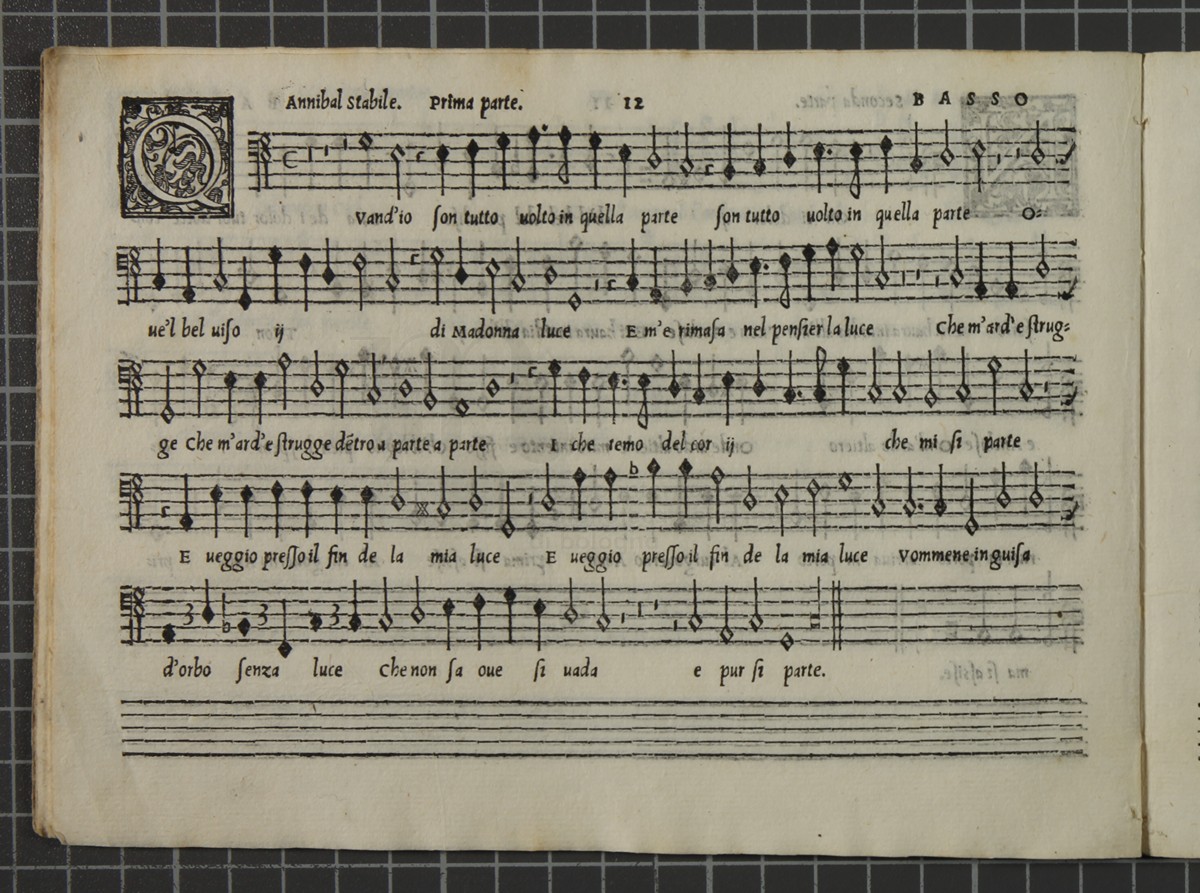 Annibal Stabile. Prima parte. 12 BASSO
QVand'io son tutto uolto in quella parte son tutto uolto in quella parte O-
ue'l bel uiso ij di Madonna luce E m'e rimasa nel pensier la luce Che m'ard'e strug-
ge Che m'ard'e strugge dētro a parte a parte I che temo del cor ij che mi si parte
E ueggio presso il fin de la mia luce E ueggio presso il fin de la mia luce Vommene in guisa
d'orbo senza luce Che non sa oue si uada e pur si parte.